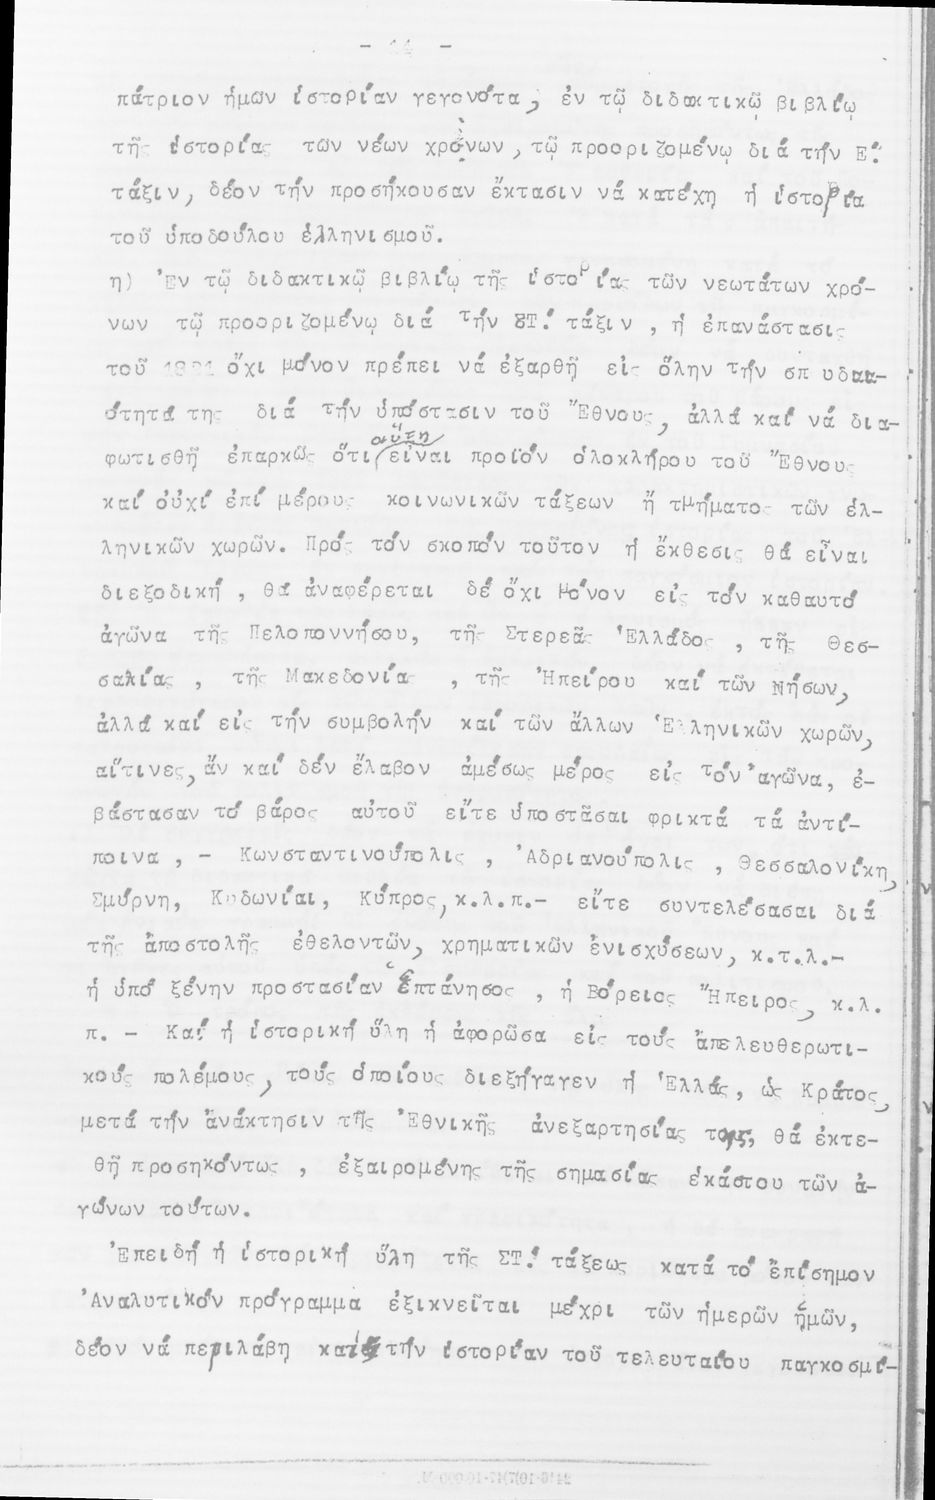 - 14 -
πάτριον ἡμῶν ἱστορίαν γεγονότα, ἐν τῷ διδακτικῷ βιβλίῳ
τῆς ἱστορίας τῶν νέων χρόνων, τῷ προοριζομένῳ διά τήν Ε΄.
τάξιν, δέον τήν προσήκουσαν ἔκτασιν νά κατέχη ἡ ἱστορία
τοῦ ὑποδούλου ἑλληνισμοῦ.
η) Ἐν τῷ διδακτικῷ βιβλίῳ τῆς ἱστορίας τῶν νεωτάτων χρό-
νων τῷ προοριζομένῳ διά τήν ΣΤ΄. τάξιν , ἡ ἐπανάστασις
τοῦ 1821 ὄχι μόνον πρέπει νά ἐξαρθῆ εἰς ὅλην τήν σπ υδαι-
ότητά της διά τήν ὑπόστασιν τοῦ Ἔθνους, ἀλλά καί νά δια-
φωτισθῆ ἐπαρκῶς ὅτι αὕτη εἶναι προϊόν ὁλοκλήρου τοῦ Ἔθνους
καί οὐχί ἐπί μέρους κοινωνικῶν τάξεων ἤ τμήματος τῶν ἑλ-
ληνικῶν χωρῶν. Πρός τόν σκοπόν τοῦτον ἡ ἔκθεσις θά εἶναι
διεξοδική , θά ἀναφέρεται δέ ὄχι μόνον εἰς τόν καθαυτό
ἀγῶνα τῆς Πελοποννήσου, τῆς Στερεᾶς Ἑλλάδος , τῆς Θεσ-
σαλίας , τῆς Μακεδονίας , τῆς Ἠπείρου καί τῶν Νήσων,
ἀλλά καί εἰς τήν συμβολήν καί τῶν ἄλλων Ἑλληνικῶν χωρῶν,
αἵτινες, ἄν καί δέν ἔλαβον ἀμέσως μέρος εἰς τόν ἀγῶνα, ἐ-
βάστασαν τό βάρος αὐτοῦ εἴτε ὑποστᾶσαι φρικτά τά ἀντί-
ποινα , - Κωνσταντινούπολις , Ἀδριανούπολις , Θεσσαλονίκη,
Σμύρνη, Κυδωνίαι, Κύπρος, κ.λ.π.- εἴτε συντελέσασαι διά
τῆς ἀποστολῆς ἐθελοντῶν, χρηματικῶν ἐνισχύσεων, κ.τ.λ.-
ἡ ὑπό ξένην προστασίαν Ἑπτάνησος , ἡ Βόρειος Ἤπειρος, κ.λ.
π. - Καί ἡ ἱστορική ὕλη ἡ ἀφορῶσα εἰς τούς ἀπελευθερωτι-
κούς πολέμους, τούς ὁποίους διεξήγαγεν ἡ Ἑλλάς, ὡς Κράτος,
μετά τήν ἀνάκτησιν τῆς Ἐθνικῆς ἀνεξαρτησίας της, θά ἐκτε-
θῆ προσηκόντως , ἐξαιρομένης τῆς σημασίας ἑκάστου τῶν ἀ-
γώνων τούτων.
Ἐπειδή ἡ ἱστορική ὕλη τῆς ΣΤ΄. τάξεως κατά τό ἐπίσημον
Ἀναλυτικόν πρόγραμμα ἐξικνεῖται μέχρι τῶν ἡμερῶν ἡμῶν,
δέον νά περιλάβη καί τήν ἱστορίαν τοῦ τελευταίου παγκοσμί-